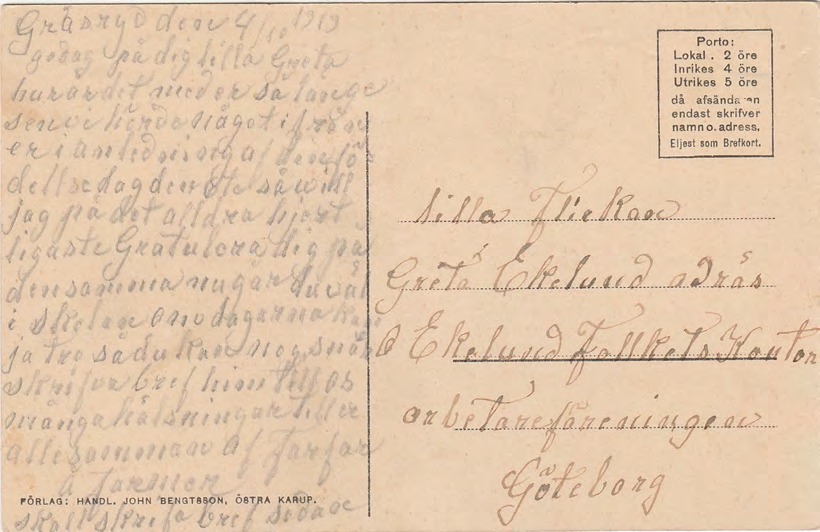 Gräsryd den 4/10 1919
godag på dig lilla Greta
hurardet meder så länge
sen vi hörde något ifrån
er i anledning af den fö
dellsedag den 6te så will
jag på det alldra hjert
ligaste Gratulera dig på
densamma nu går du väl
i skolan om dagarna kan
ja tro så du kan nog snart
skrifva bref him till os
många hälsningar till er
allesamman af farfar
å farmor
skall skrifa bref sedan
FÖRLAG: HANDL. JOHN BENGTSSON, ÖSTRA KARUP.
Porto:
Lokal . 2 öre
Inrikes 4 öre
Utrikes 5 öre
då afsändaren
endast skrifver
namn o. adress.
Eljest som Brefkort.
lilla Flickan
Greta Ekelund adräs
Ekelund Fallkets Kontor
arbetareföreningen
Göteborg